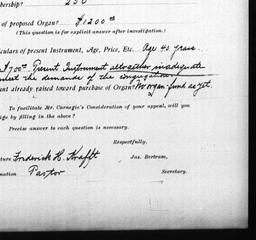 bership? 250
of proposed Organ? $1200⁰⁰
(This question is for explicit answer after investigation.)
culars of present Instrument, Age, Price, Etc. Age 40 years.
$700⁰⁰. Present Instrument altogether inadequate
meet the demands of the congregation.
ent already raised toward purchase of Organ? No organ fund as yet.
To facilitate Mr. Carnegie's Consideration of your appeal, will you
ige by filling in the above?
Precise answer to each question is necessary.
Respectfully,
ture Frederick H. Krafft Jas. Bertram,
nation Pastor Secretary.